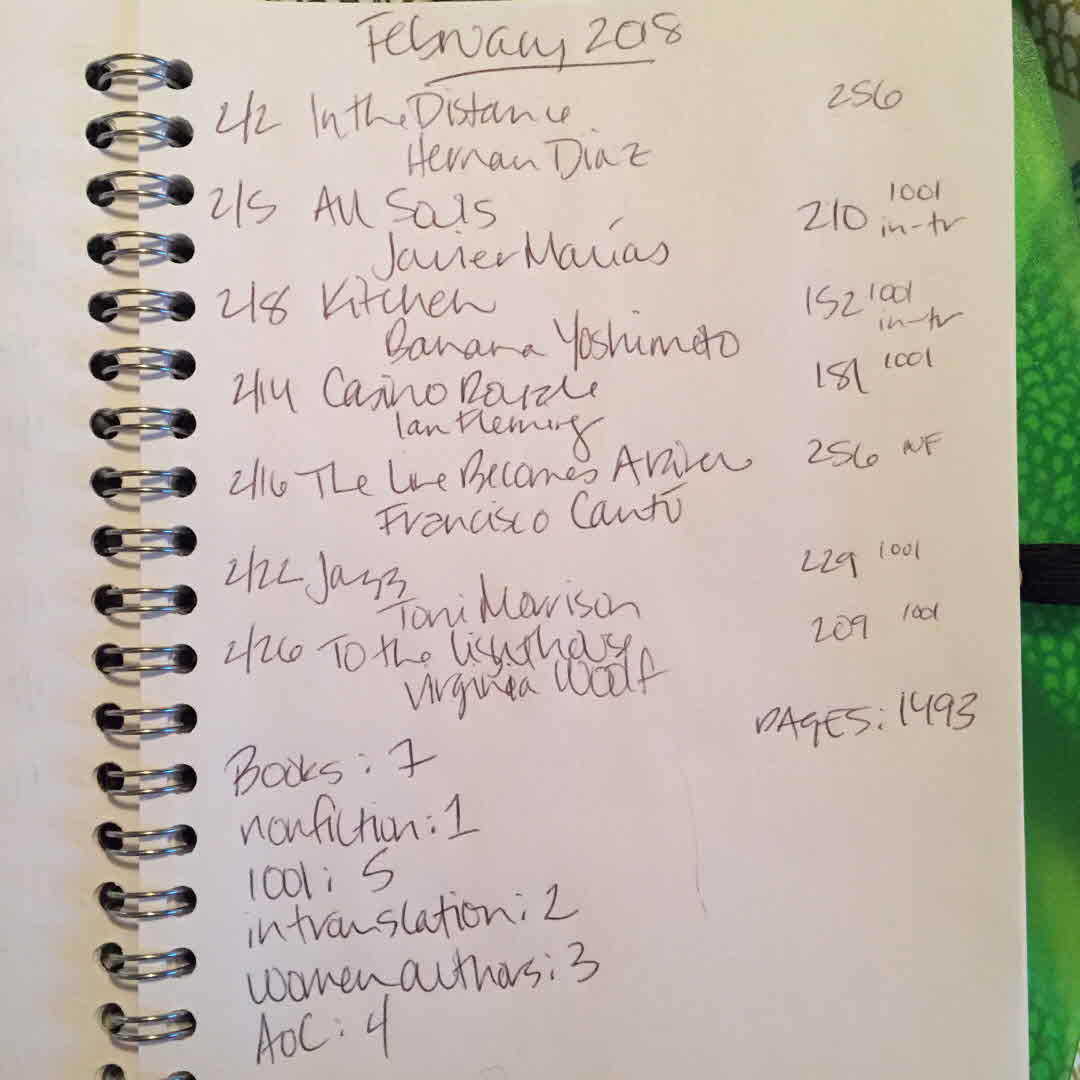 February 2018
2/2 In the Distance 256
Hernan Diaz
2/5 All Souls 210 1001 in-tr
Javier Marías
2/8 Kitchen 152 1001 in-tr
Banana Yoshimoto
2/14 Casino Royale 181 1001
Ian Fleming
2/16 The Line Becomes A River 256 NF
Francisco Cantú
2/22 Jazz 229 1001
Toni Morrison
2/26 To the Lighthouse 209 1001
Virginia Woolf
PAGES: 1493
Books: 7
nonfiction: 1
1001: 5
in translation: 2
women authors: 3
AoC: 4